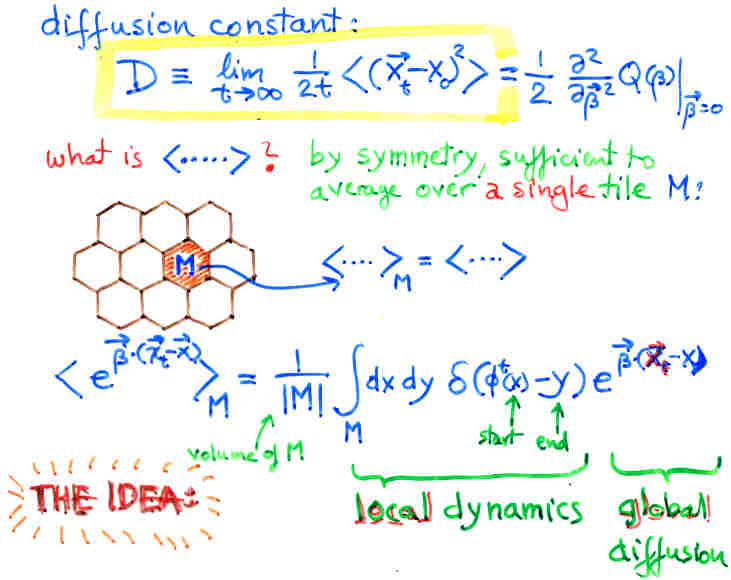 diffusion constant:
D ≡ lim t→∞ 1/2t <(x⃗t-x0)²> = 1/2 ∂²/∂β⃗² Q(β)|β⃗=0
what is <.....> ? by symmetry, sufficient to
average over a single tile M:
M <....>M = <....>
<e^β⃗·(x⃗t-x⃗)>M = 1/|M| ∫M dx dy δ(ϕᵗ(x)-y) e^β⃗·(x⃗t-x)
volume of M start end
THE IDEA:
local dynamics global
diffusion